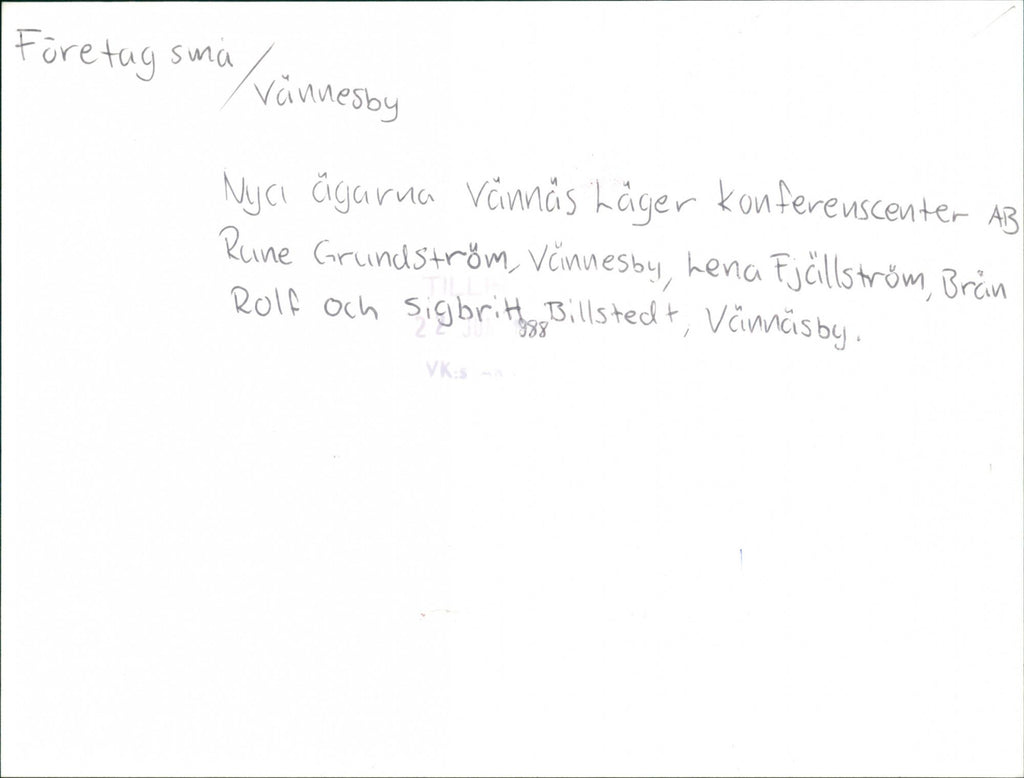 Företag små /
Vännesby
Nya ägarna Vännäs Läger konferenscenter AB
Rune Grundström, Vännesby, Lena Fjällström, Brån
Rolf och Sigbritt Billstedt, Vännäsby.
22 JUN 1988
VK:s